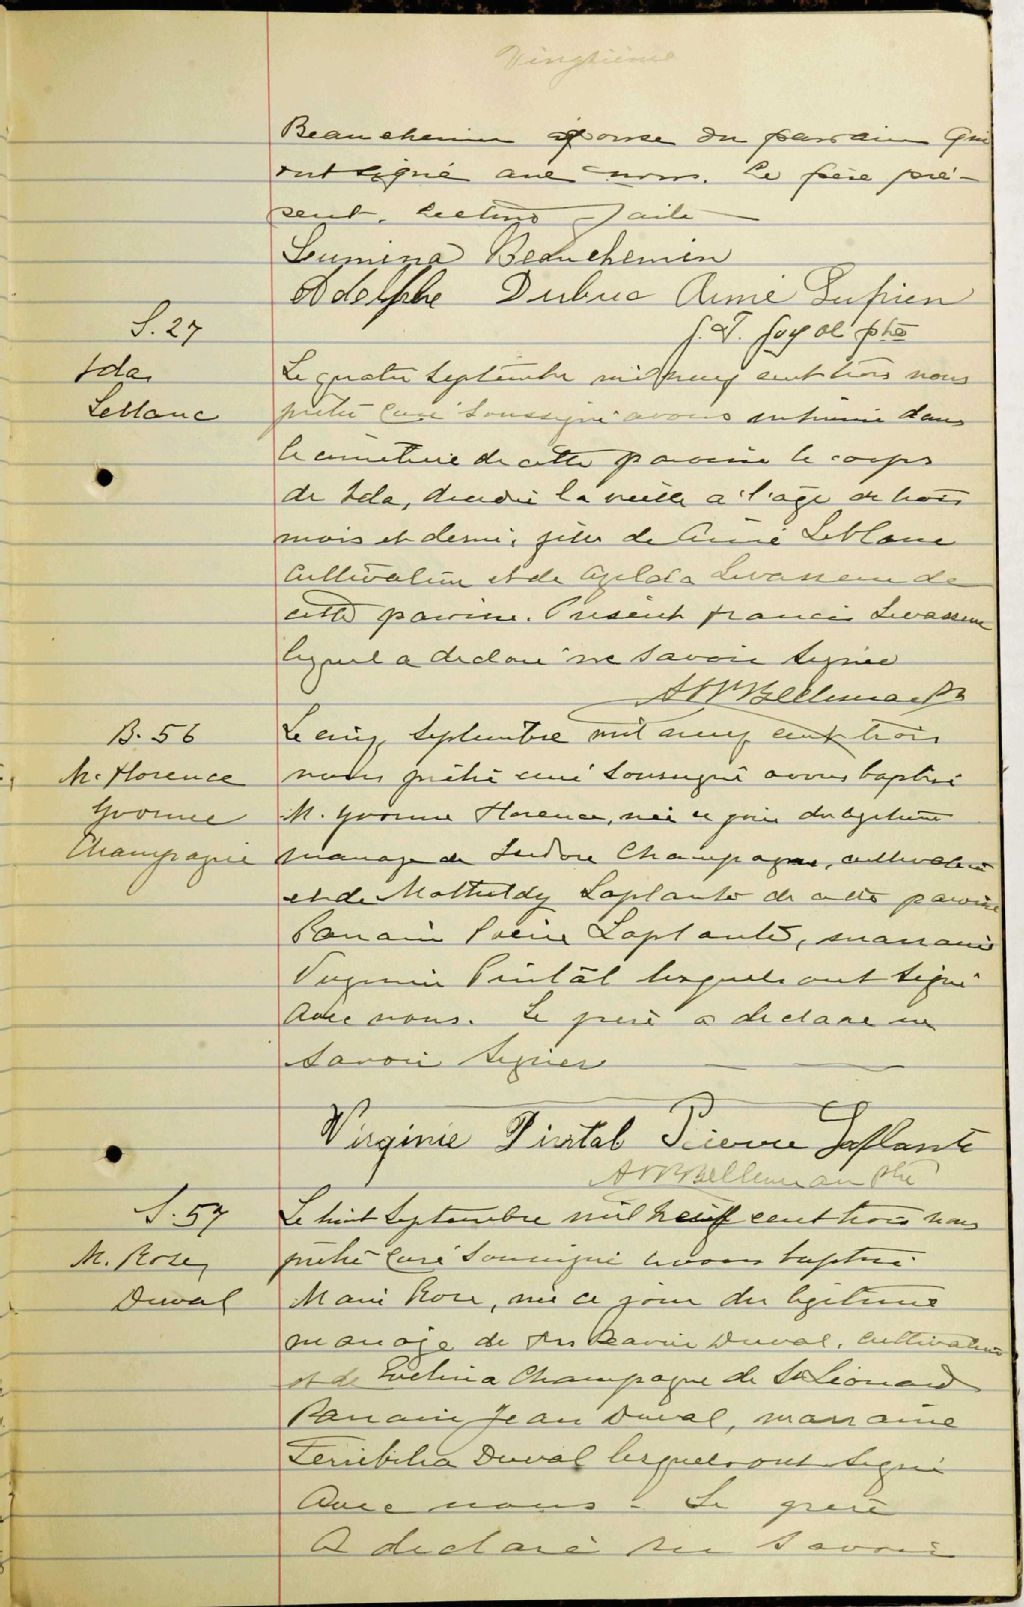 Vingtième
Beauchemin épouse du parrain qui
ont signé avec nous. Le père pré-
sent. Lecture faite
Lumina Beauchemin
Adolphe Dubuc Aimé Lupien
J. T. ptre
S. 27
Ida
Leblanc
Le quatre Septembre mil neuf cent trois nous
prêtre curé soussigné avons inhumé dans
le cimetière de cette paroisse le corps
de Ida, décédée la veille a l'âge de trois
mois et demi, fille de Aimé Leblanc
cultivateur et de Levasseur de
cette paroisse. Présent Francis Levasseur
lequel a déclaré ne savoir signer
Bellemare Ptr
B. 56
M. Florence
Yvonne
Champagne
Le cinq Septembre mil neuf cent trois
nous prêtre curé soussigné avons baptisé
M. Yvonne Florence, née ce jour du légitime
mariage de Isidore Champagne, cultivateur
et de Mathildy Laplante de cette paroisse
Parrain Pierre Laplante, marraine
Virginie Pintal lesquels ont signé
avec nous. Le père a déclaré ne
savoir signer
Virginie Pintal Pierre Laplante
Bellemare Ptre
S. 57
M. Rose
Duval
Le huit Septembre mil neuf cent trois nous
prêtre curé soussigné avons baptisé
Marie Rose, née ce jour du légitime
mariage de Frs Xavier Duval, cultivateur
et de Evelina Champagne de St Léonard
Parrain Jean Duval, marraine
Duval lesquels ont signé
avec nous - Le père
a déclaré ne savoir